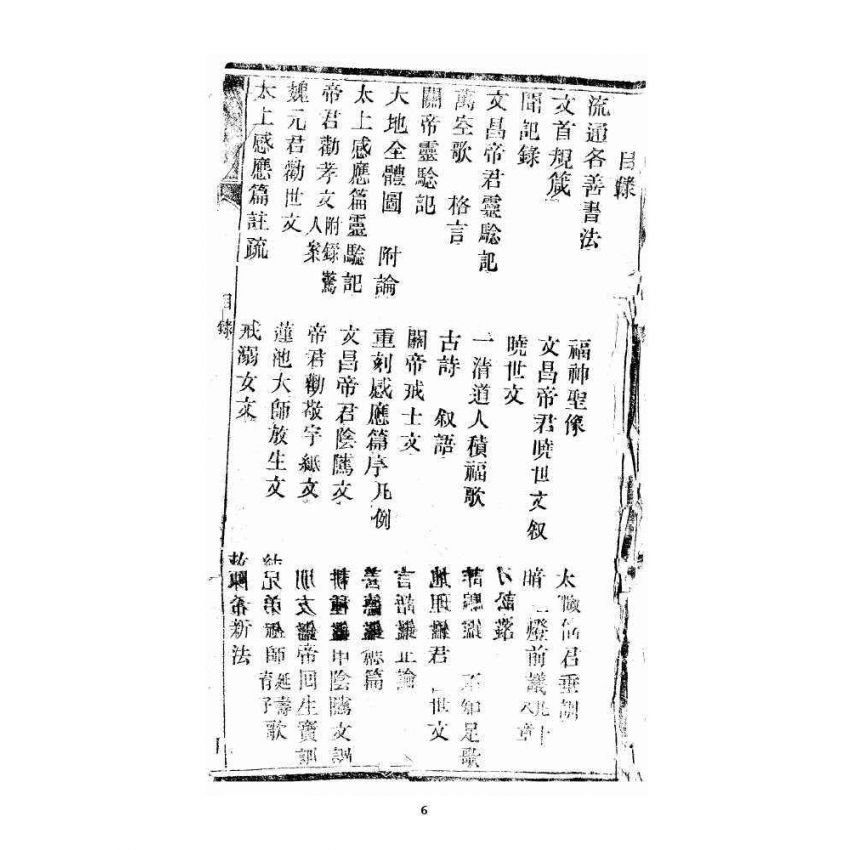 目錄
流通各善書法 福神聖像 太君垂
文首規箴 文昌帝君曉世文叙 燈前議
聞記錄 曉世文
文昌帝君靈驗記 一清道人積福歌 不知足歌
萬空歌 格言 古詩 叙語 地理君 世文
關帝靈驗記 關帝戒士文 言語
大地全體圖 附論 重刻感應篇序凡例 篇
太上感應篇靈驗記 文昌帝君陰騭文 耕種 陰騭文
帝君勸孝文 附錄驚人案 帝君勸敬字紙文 朋友 帝回生寶訓
魏元君勸世文 蓮池大師放生文 兄弟 師延壽育子歌
太上感應篇註疏 戒溺女文 陳希新法
目錄
6